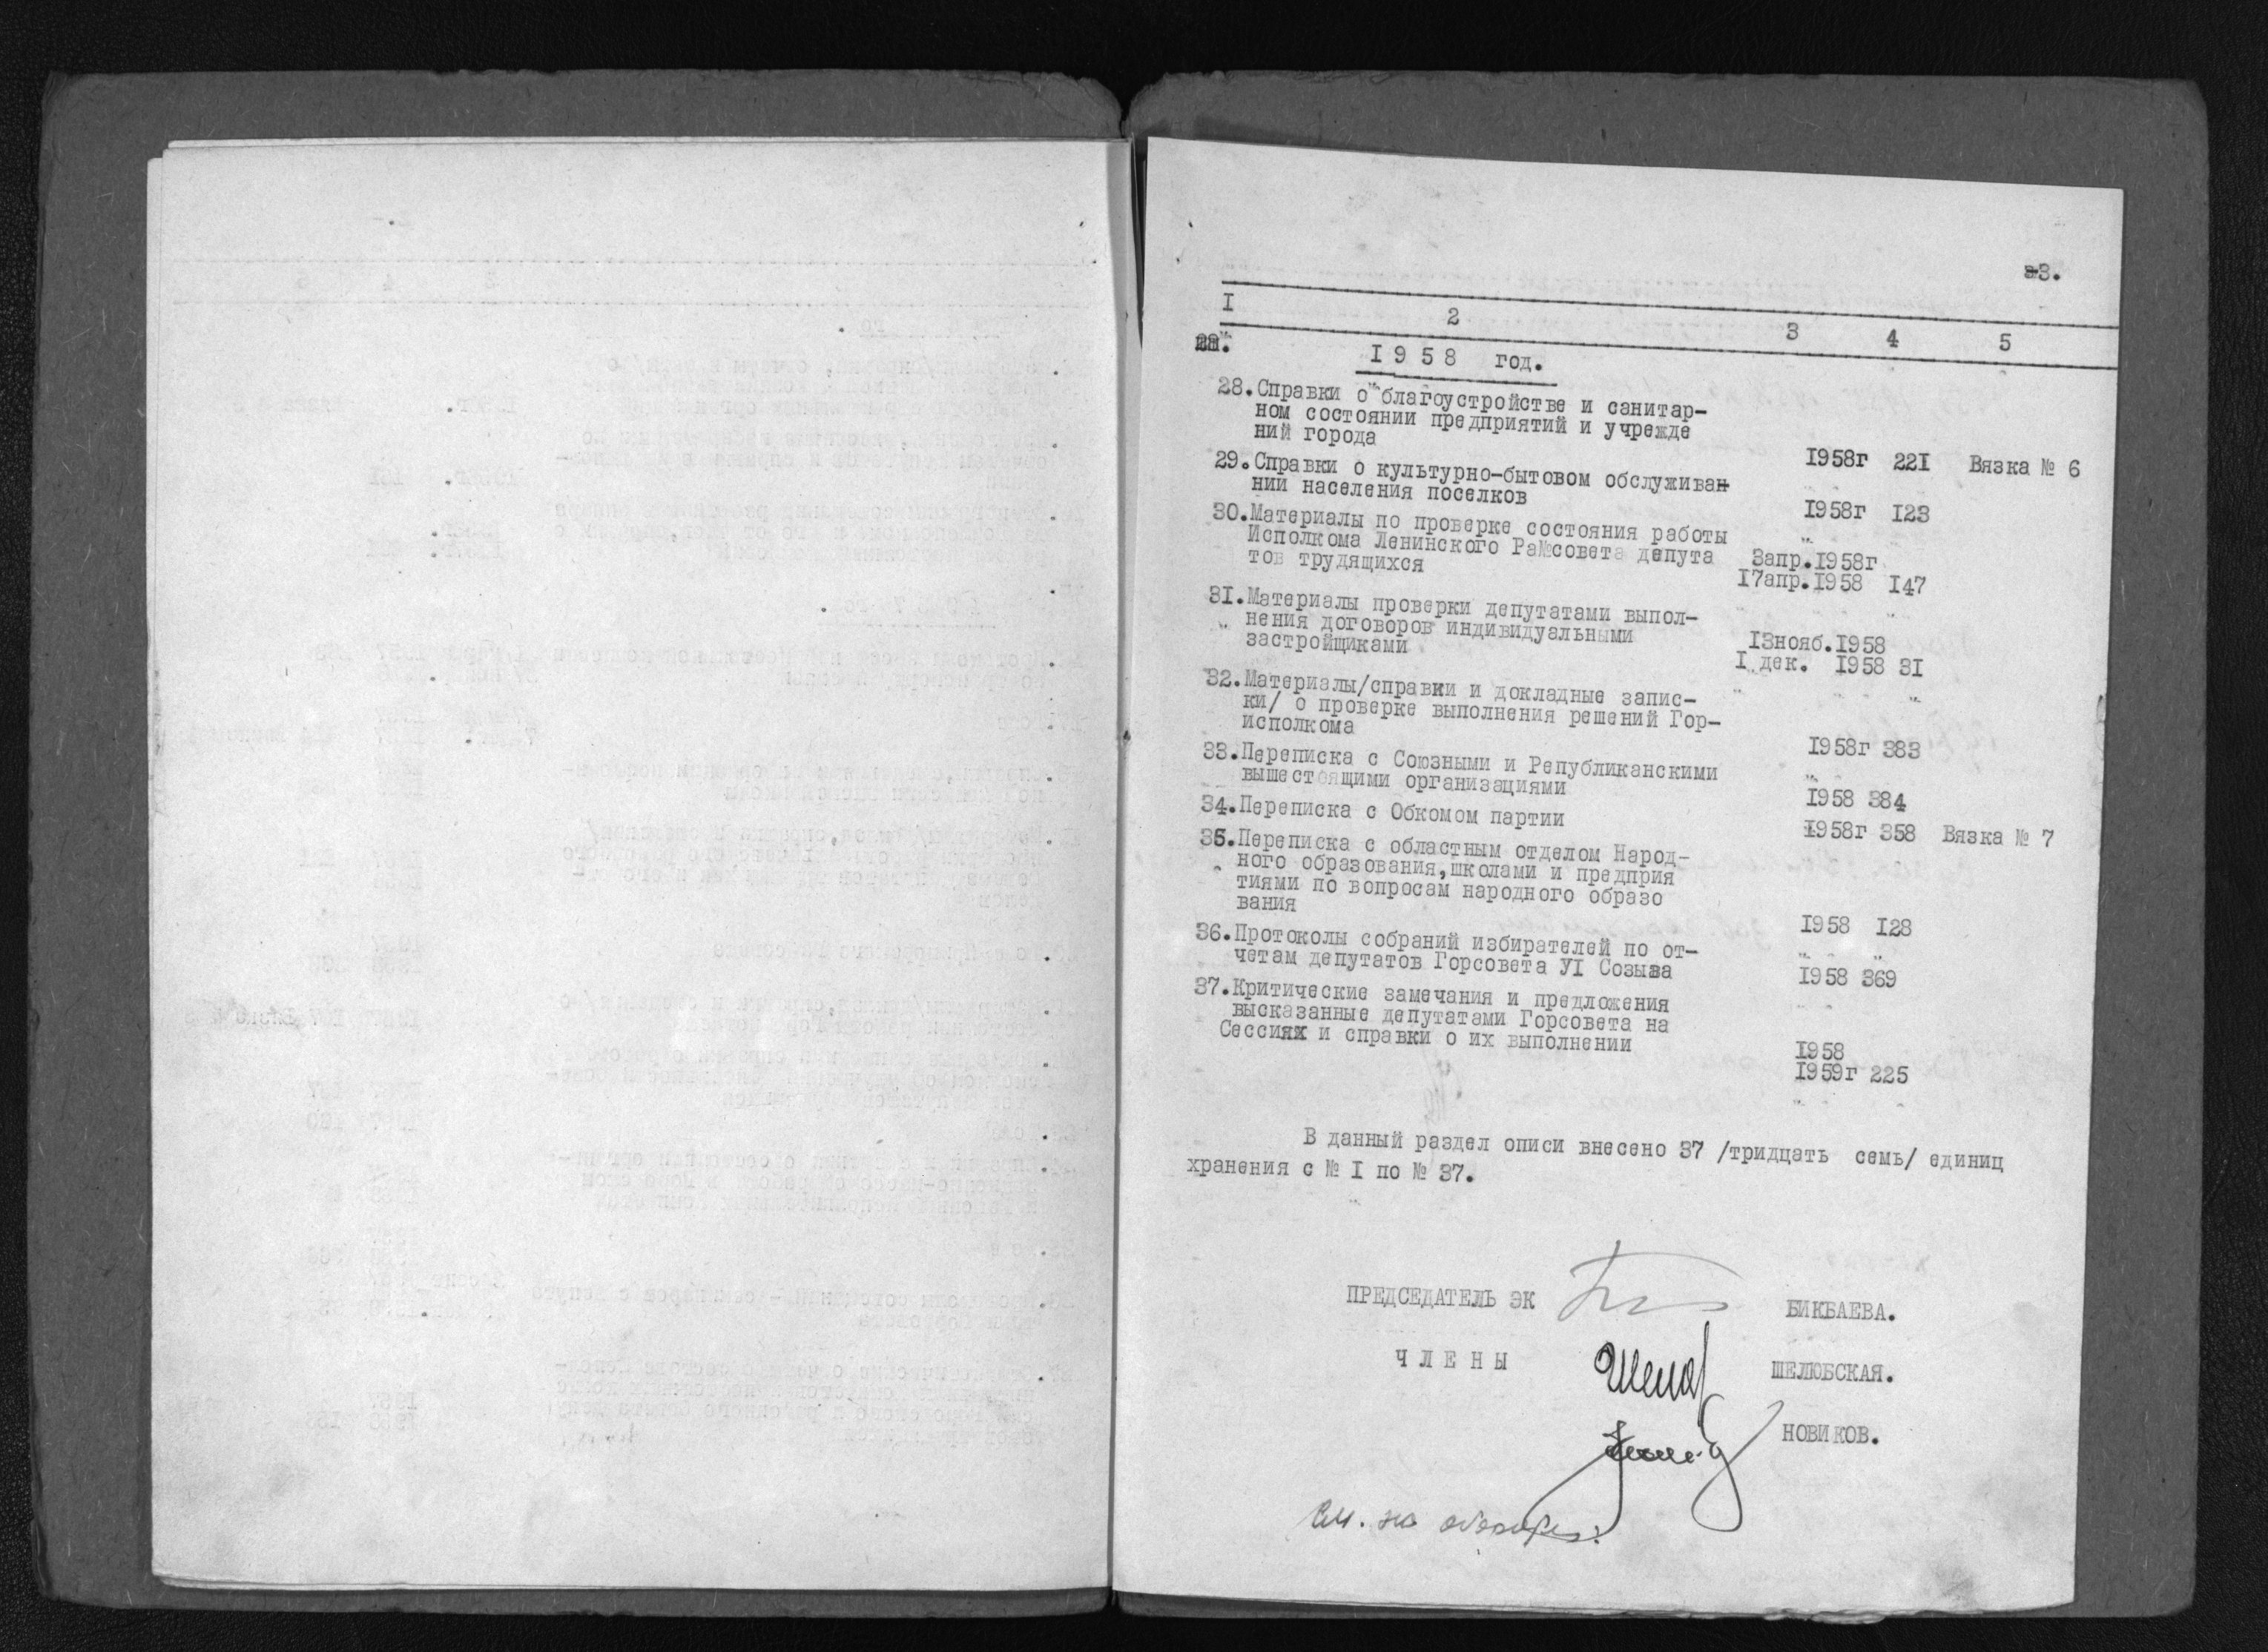 3.
1 2 3 4 5
1958 год.
28. Справки о благоустройстве и санитар-
ном состоянии предприятий и учрежде
ний города 1958г 221 Вязка № 6
29. Справки о культурно-бытовом обслуживан
нии населения поселков 1958г 123
30. Материалы по проверке состояния работы
Исполкома Ленинского Райсовета депута 3апр.1958г
тов трудящихся 17апр.1958 147
31. Материалы проверки депутатами выпол-
нения договоров индивидуальными 13нояб.1958
застройщиками 1 дек. 1958 31
32. Материалы/справки и докладные запис-
ки/ о проверке выполнения решений Гор-
исполкома 1958г 383
33. Переписка с Союзными и Републиканскими
вышестоящими организациями 1958 384
34. Переписка с Обкомом партии 1958г 358 Вязка № 7
35. Переписка с областным отделом Народ-
ного образования, школами и предприя
тиями по вопросам народного образо
вания 1958 128
36. Протоколы собраний избирателей по от-
четам депутатов Горсовета УI Созыва 1958 369
37. Критические замечания и предложения
высказанные депутатами Горсовета на
Сессиях и справки о их выполнении 1958
1959г 225
В данный раздел описи внесено 37 /тридцать семь/ единиц
хранения с № I по № 37.
ПРЕДСЕДАТЕЛЬ ЭК БИКБАЕВА.
ЧЛЕНЫ ШЕЛЮБСКАЯ.
НОВИКОВ.
См. на обороте: